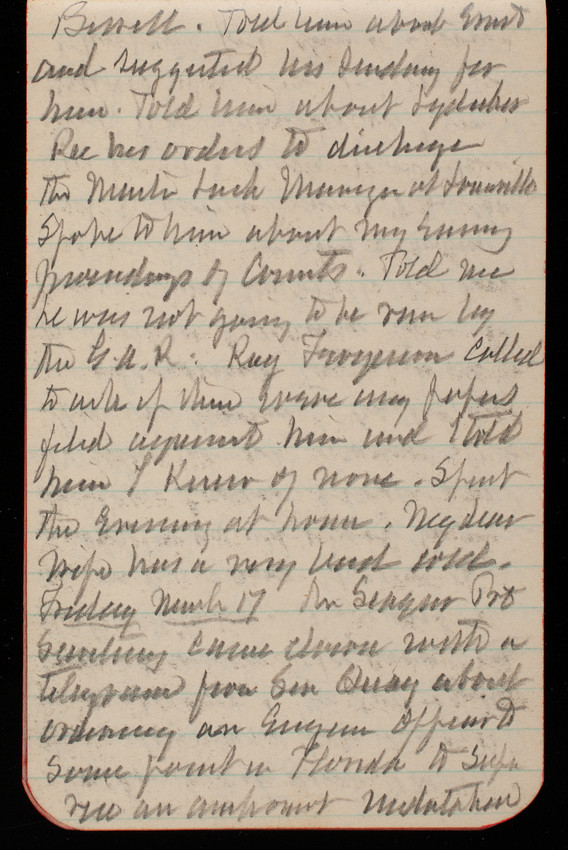 Bissell. Told him about Ernst
and suggested his sending for
him. Told him about
Rec his orders to discharge
the Manager at Louisville
Spoke to him about my
proceedings of Courts. Told me
he was not going to be run by
the G.A.R. Ray Furgerson called
to ask if there were any papers
filed against him and I told
him I knew of none. Spent
the Evening at home. My dear
wife has a very bad cold.
Friday March 17 Mr Seager Prt
Secretary came down with a
telegram from Sen Quay about
ordering an Engineer Officer to
some point in Florida to
vise an